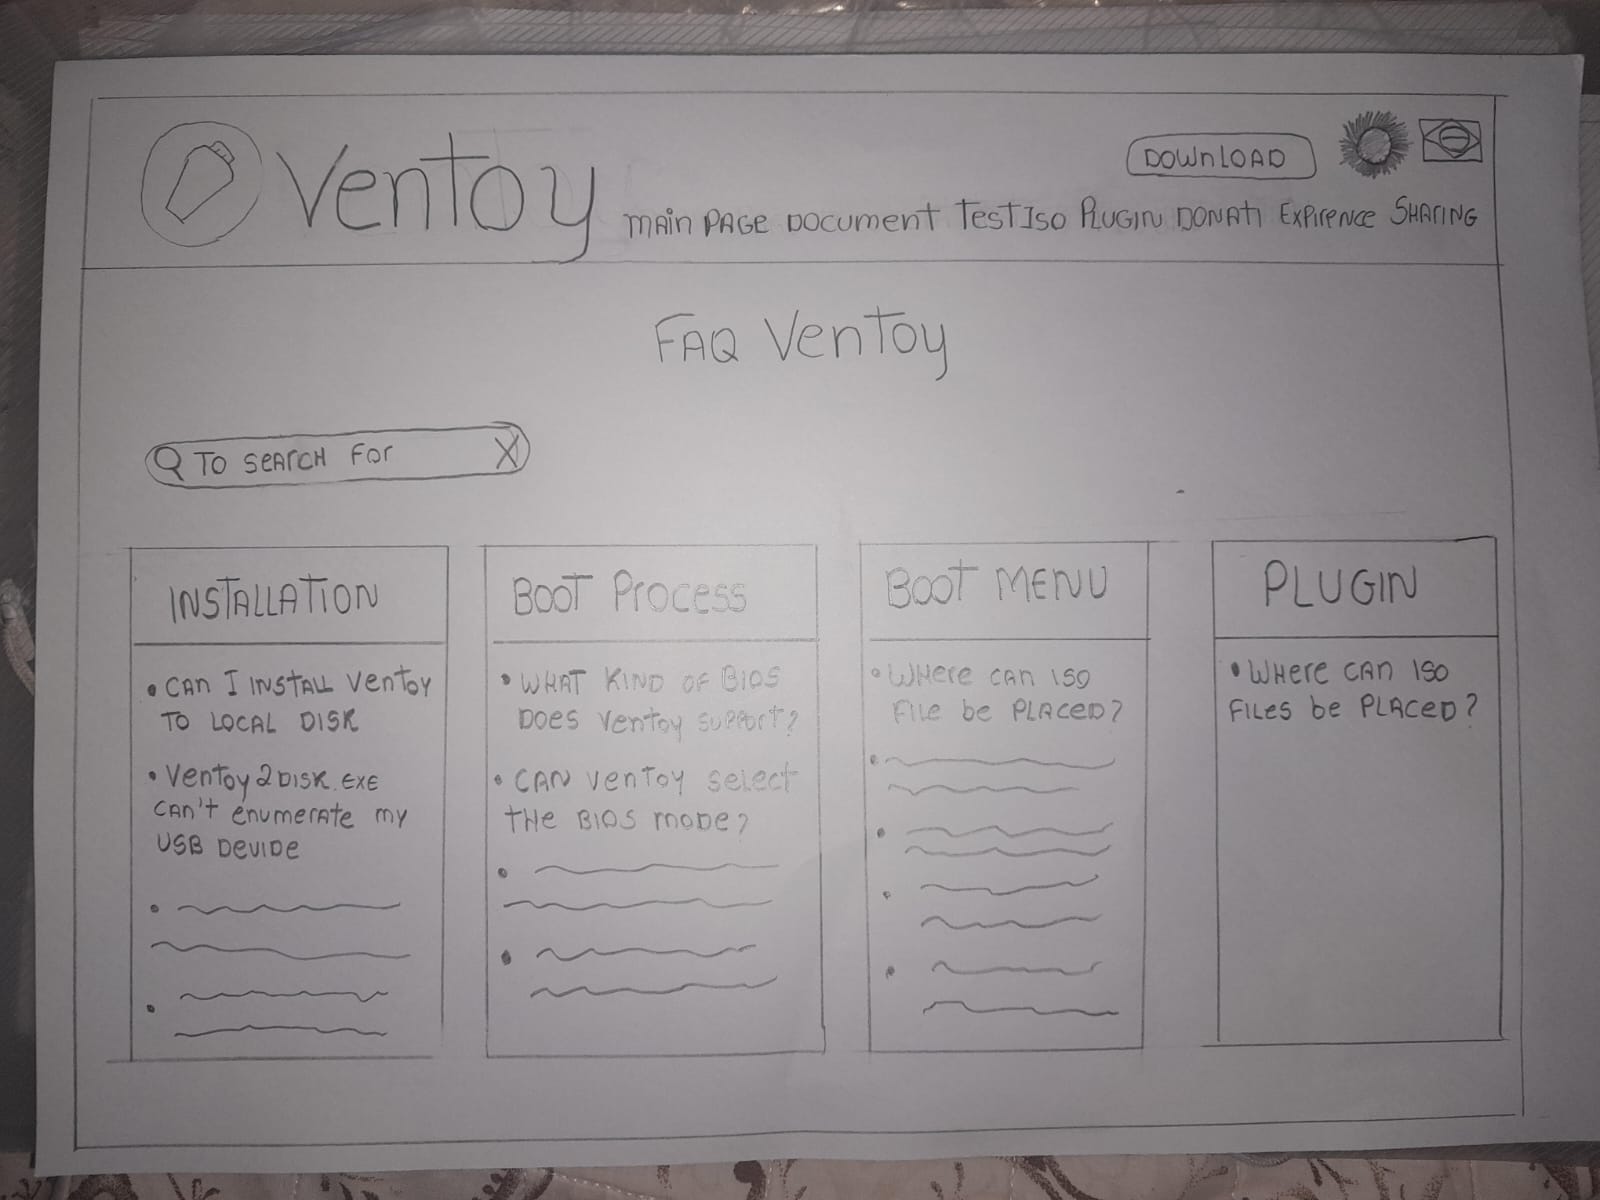 Ventoy
DOWNLOAD
MAIN PAGE DOCUMENT TEST ISO PLUGIN DONATI EXPIRENCE SHARING
FAQ Ventoy
TO SEARCH FOR X
INSTALLATION
• CAN I INSTALL VENTOY
TO LOCAL DISK
• VENTOY2DISK.EXE
CAN'T ENUMERATE MY
USB DEVIDE
BOOT PROCESS
• WHAT KIND OF BIOS
DOES VENTOY SUPPORT?
• CAN VENTOY SELECT
THE BIOS MODE?
BOOT MENU
• WHERE CAN ISO
FILE BE PLACED?
PLUGIN
• WHERE CAN ISO
FILES BE PLACED?